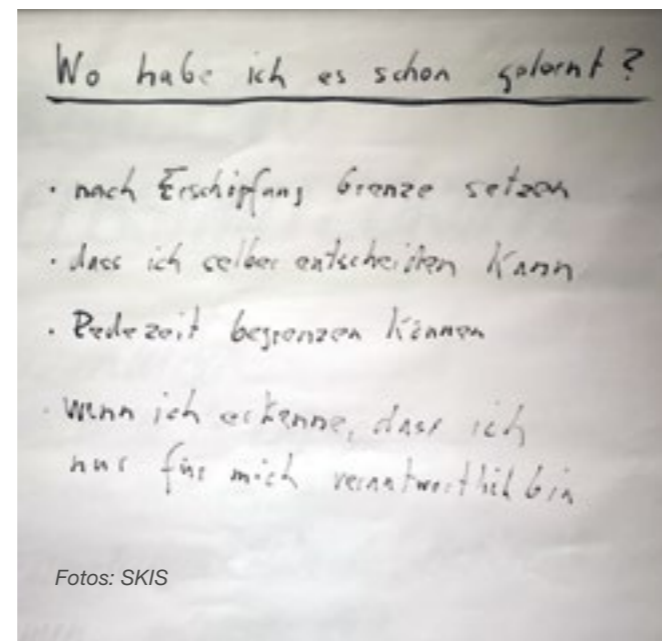 Wo habe ich es schon gelernt?
· nach Erschöpfung Grenze setzen
· dass ich selber entscheiden kann
· Redezeit begrenzen können
· wenn ich erkenne, dass ich
nur für mich verantwortlich bin
Fotos: SKIS